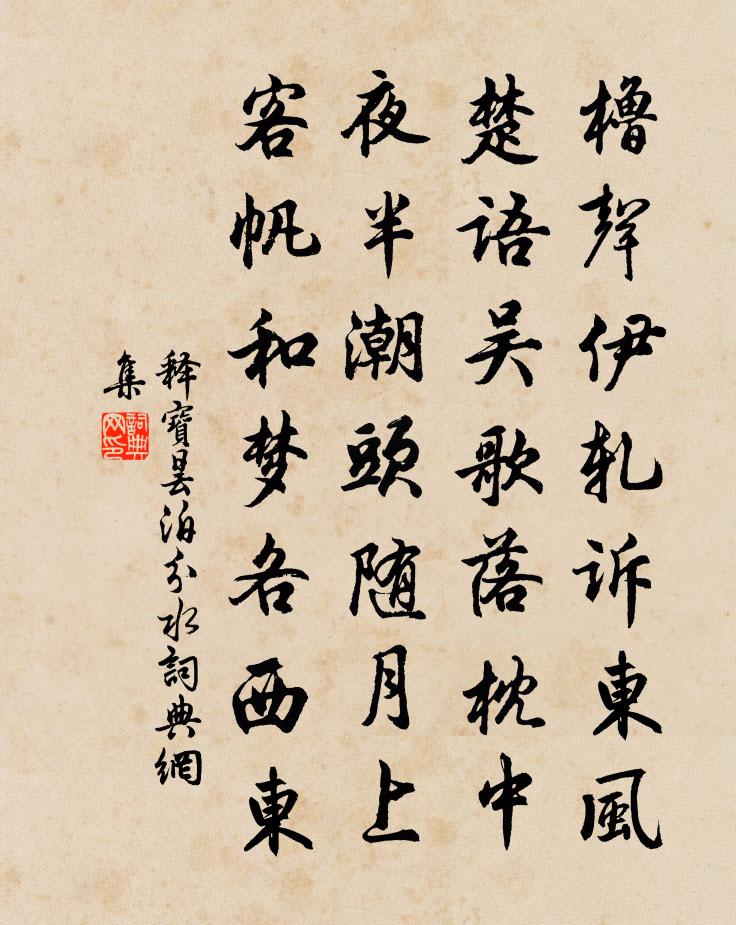 櫓聲伊軋訴東風
楚語吴歌落枕中
夜半潮頭随月上
客帆和梦各西東
释寶曇泊分水詞典網
集
詞典
网印